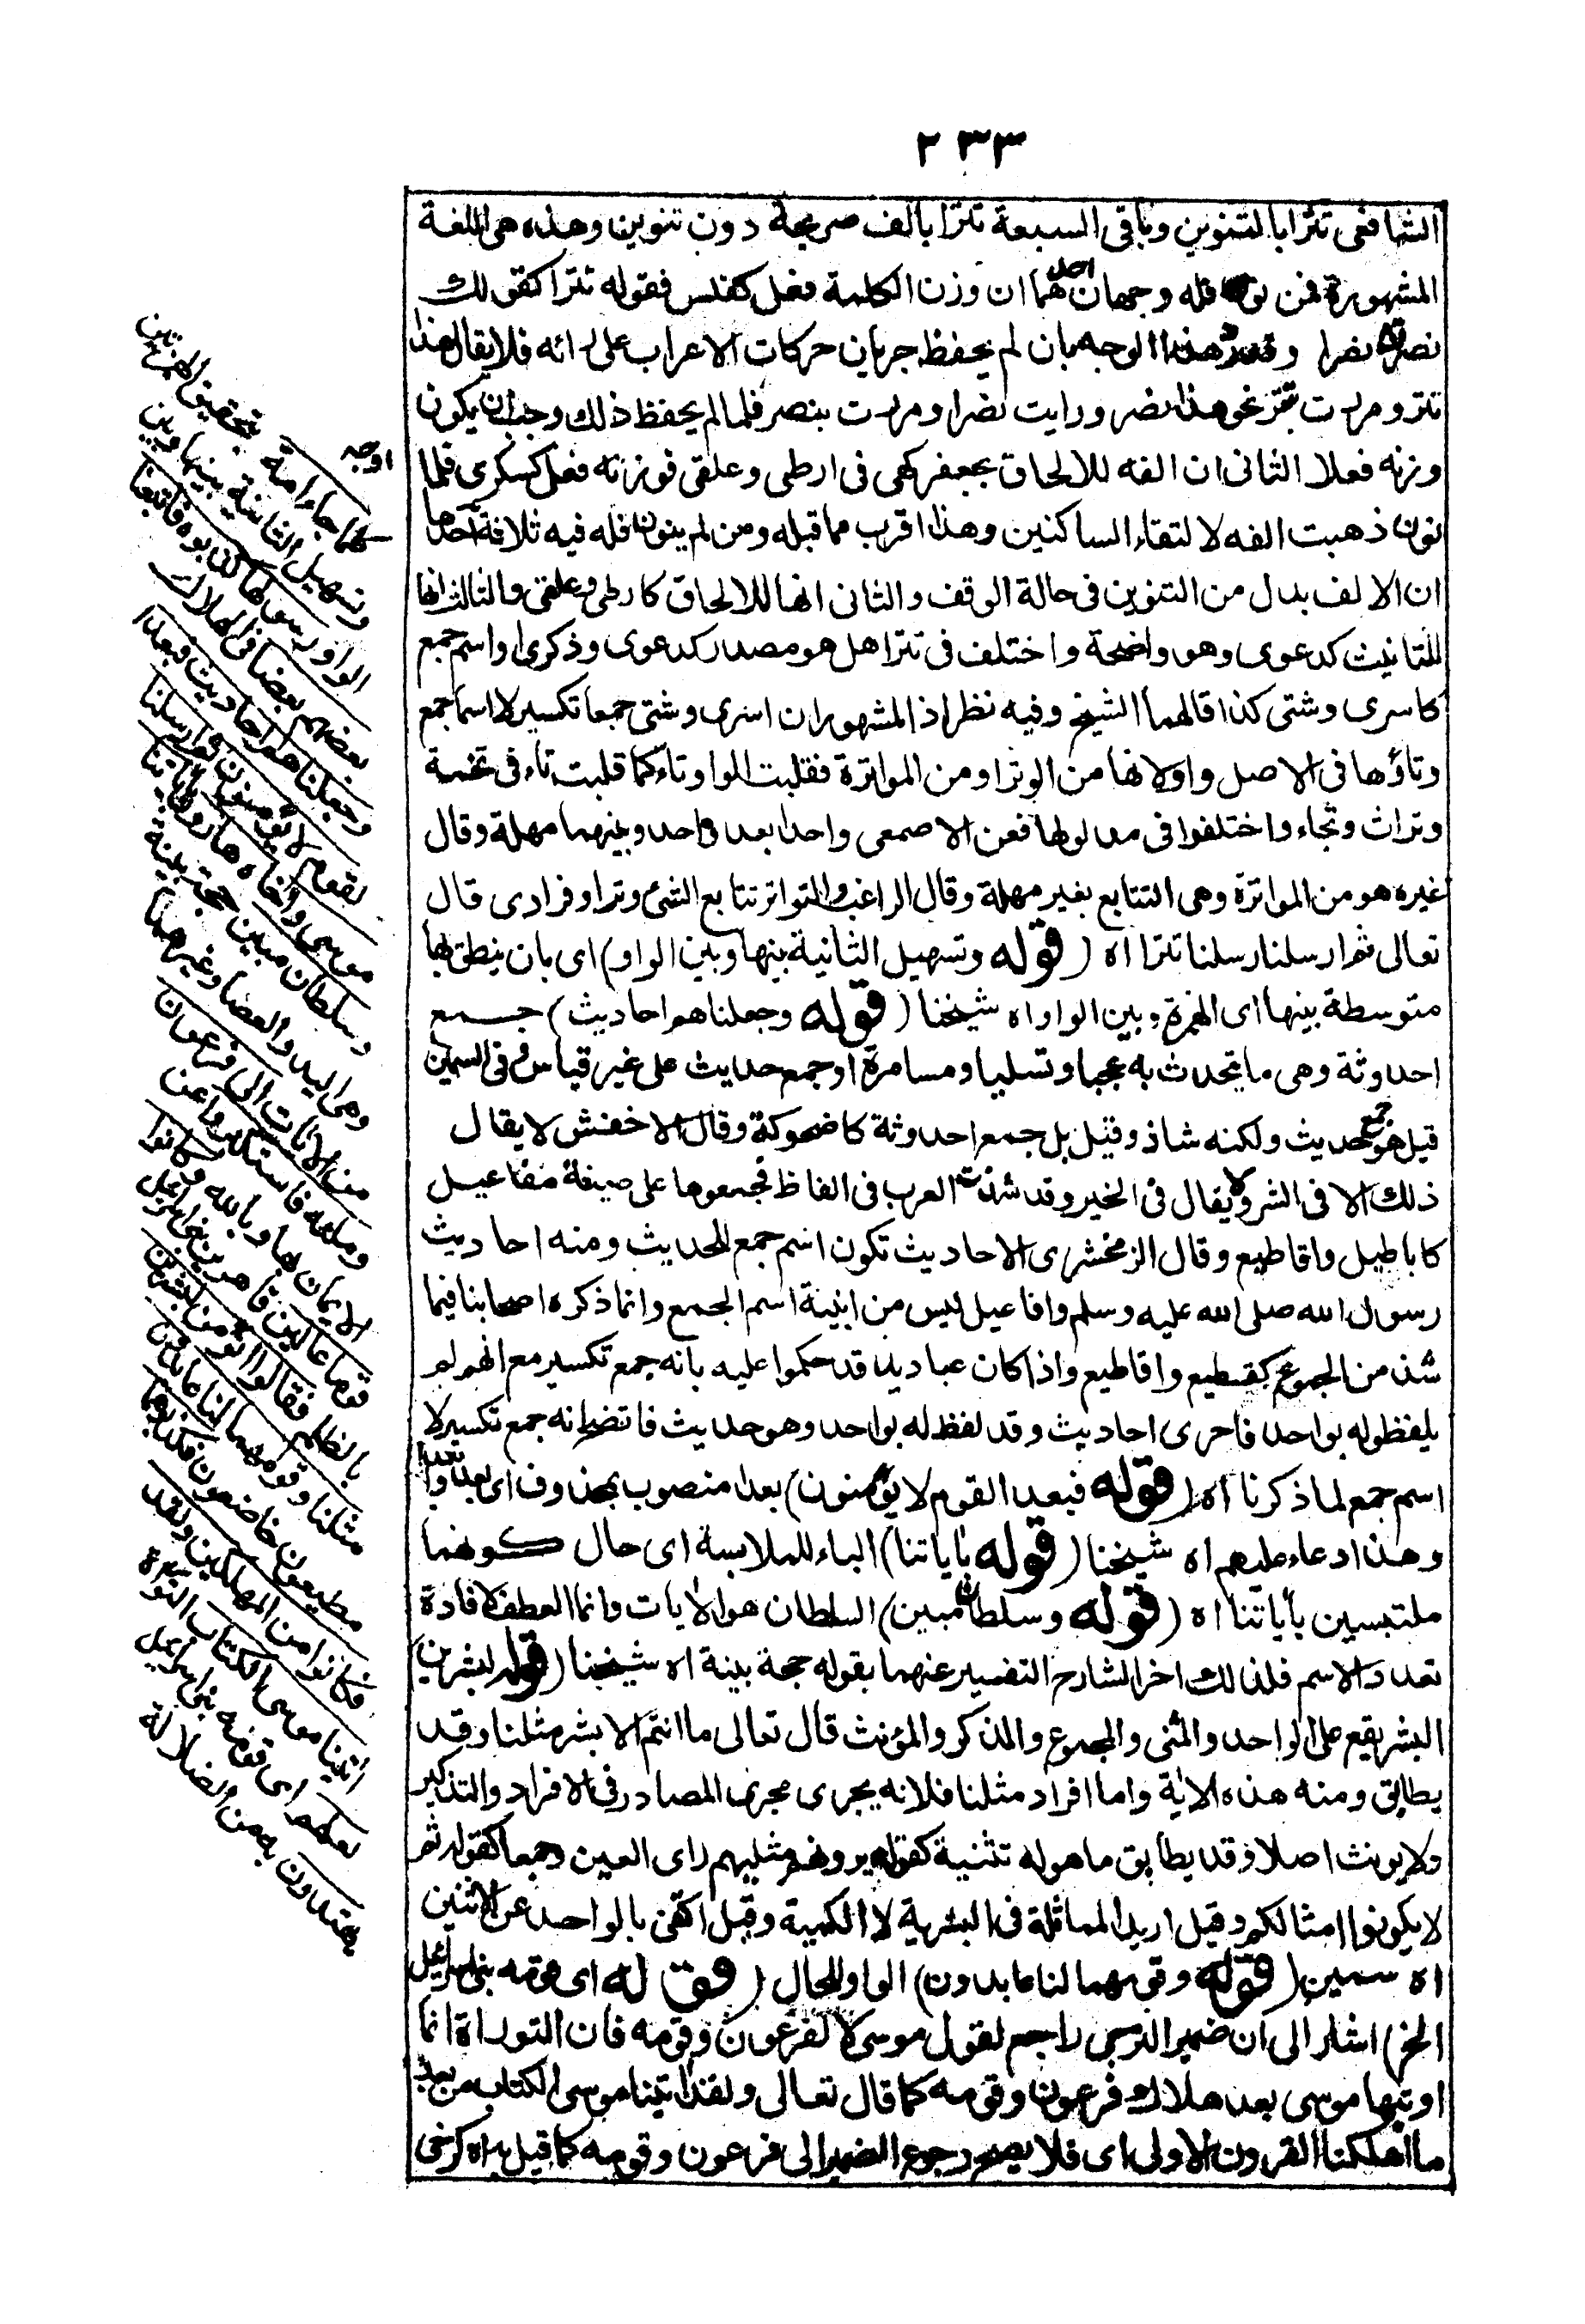 ٢٣٣
الشافعى تترا بالتنوين وباقى السبعة تترا بالف صريحة دون تنوين وهذه هى اللغة
المشهورة فمن نون فله وجهان احدهما ان وزن الكلمة فعل كفلس فقوله تترا كقولك
نصرته نصرا وقد رد هذا الوجه بان لم يحفظ جريان حركات الاعراب على رائه فلا يقال هذا
تتر ومررت بتتر نحو هذا نصر ورايت نصرا ومررت بنصر فلما لم يحفظ ذلك وجب ان يكون
وزنه فعلا الثانى ان الفه للالحاق بجعفر كهى فى ارطى وعلقى فوزنه فعلى كسكرى فلما
نون ذهبت الفه لالتقاء الساكنين وهذا اقرب مما قبله ومن لم ينون فله فيه ثلاثة اوجه احدها
ان الالف بدل من التنوين فى حالة الوقف والثانى انها للالحاق كارطى وعلقى والثالث انها
للتانيث كدعوى وهو واضحة واختلف فى تترا هل هو مصدر كدعوى وذكرى او اسم جمع
كاسرى وشتى كذا قالهما الشيخ وفيه نظر اذ المشهور ان اسرى وشتى جمعا تكسير لا اسما جمع
وتاؤها فى الاصل واو لانها من الوتر او من المواترة فقلبت الواو تاء كما قلبت تاء فى تخمة
وتراث وتجاء واختلفوا فى مدلولها فعن الاصمعى واحدا بعد واحد وبينهما مهلة وقال
غيره هو من المواترة وهى التتابع بغير مهلة وقال الراغب والتواتر تتابع الشئ وترا وفرادى قال
تعالى ثم ارسلنا رسلنا تترا اه (قوله وتسهيل الثانية بينها وبين الواو) اى بان ينطق بها
متوسطة بينها اى الهمزة وبين الواو اه شيخنا (قوله وجعلناهم احاديث) جمع
احدوثة وهى ما يتحدث به عجبا وتسليا ومسامرة او جمع حديث على غير قياس وفى السمين
قيل هو جمع حديث ولكنه شاذ وقيل بل جمع احدوثة كاضحوكة وقال الاخفش لا يقال
ذلك الا فى الشر ولا يقال فى الخير وقد شذت العرب فى الفاظ فجمعوها على صيغة مفاعيل
كاباطيل واقاطيع وقال الزمخشرى الاحاديث تكون اسم جمع للحديث ومنه احاديث
رسول الله صلى الله عليه وسلم وافاعيل ليس من ابنية اسم الجمع وانما ذكره اصحابنا فيما
شذ من الجموع كقطيع واقاطيع واذا كان عباديد قد حكموا عليه بانه جمع تكسير مع انهم لم
يلفظوا له بواحد فاحرى احاديث وقد لفظ له بواحد وهو حديث فاتضح انه جمع تكسير لا
اسم جمع لما ذكرنا اه (قوله فبعدا لقوم لا يؤمنون) بعدا منصوب بمحذوف اى بعدوا بعدا
وهذا دعاء عليهم اه شيخنا (قوله باياتنا) الباء للملابسة اى حال كونهما
ملتبسين بأياتنا اه (قوله وسلطان مبين) السلطان هو الايات وانما العطف لافادة
تعدد الاسم فلذلك اخر الشارح التفسير عنهما بقوله حجة بينة اه شيخنا (قوله لبشرين)
البشر يقع على الواحد والمثنى والمجموع والمذكر والمؤنث قال تعالى ما انتم الا بشر مثلنا وقد
يطابق ومنه هذه الاية واما افراد مثلنا فلانه يجرى مجرى المصادر فى الافراد والتذكير
ولا يونث اصلا وقد يطابق ما هو له تثنية كقوله يرونهم مثليهم راى العين وجمعا كقوله ثم
لا يكونوا امثالكم وقيل اريد المماثلة فى البشرية لا الكمية وقيل اكتفى بالواحد عن الاثنين
اه سمين (قوله وقومهما لنا عابدون) الواو للحال (قوله اى قومه بنى اسرائيل
الخ) اشار الى ان ضمير الترجى راجع لقوم موسى لا لفرعون وقومه فان التوراة انما
اوتيها موسى بعد هلاك فرعون وقومه كما قال تعالى ولقد اتينا موسى الكتاب من بعد
ما اهلكنا القرون الاولى اى فلا يصح رجوع الضمير الى فرعون وقومه كما قيل به اه كرخى
كلما جاء امة بتحقيق الهمزتين
وتسهيل الثانية بينها وبين
الواو رسولها كذبوه فاتبعنا
بعضهم بعضا فى الهلاك
وجعلناهم احاديث فبعدا
لقوم لا يؤمنون ثم ارسلنا
موسى واخاه هارون باياتنا
وسلطان مبين حجة بينة
وهى اليد والعصا وغيرهما
من الايات الى فرعون
وملئه فاستكبروا عن
الايمان بها وبالله وكانوا
قوما عالين قاهرين بنى اسرائيل
بالظلم فقالوا انؤمن لبشرين
مثلنا وقومهما لنا عابدون
مطيعون خاضعون فكذبوهما
فكانوا من المهلكين ولقد
اتينا موسى الكتاب التوراة
لعلهم اى قومه بنى اسرائيل
يهتدون به من الضلالة